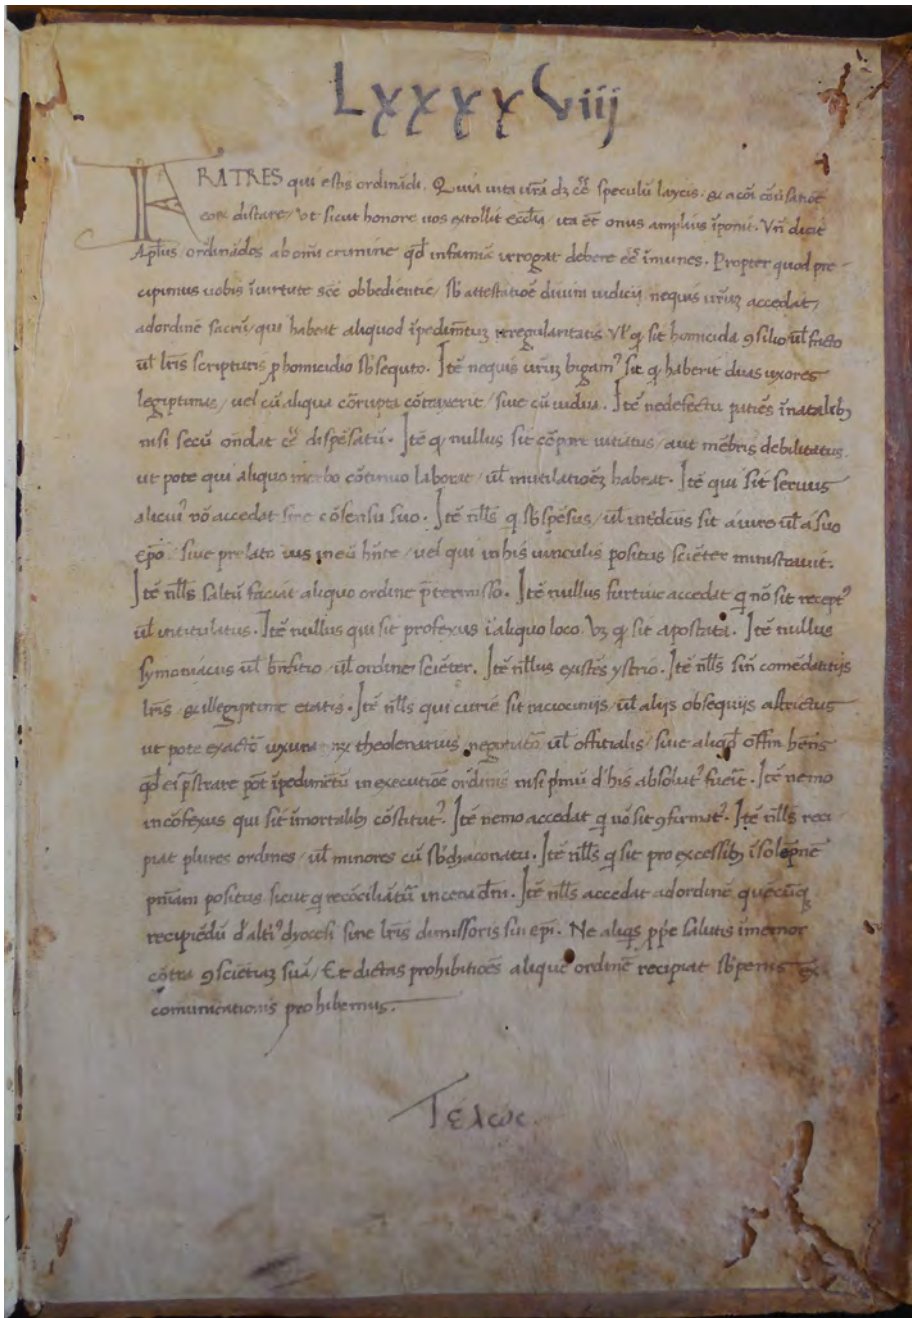 LXXXXViij
FRATRES qui estis ordinādi. Quia uita ur̄a dz eē speculū laycis. & a cōi cōuersatiōe
eor distare, ut sicut honore uos extollit ecclīa, ita ēt onus amplius īponit. Vn̄ dicit
Apl̄us ordinādos ab omi crimine qd̄ infamiā irrogat debere eē īmunes. Propter quod pre-
cipimus uobis ī uirtute scē obbedientie, sb̄ attestatiōe diuini iudicij nequis ur̄uz accedat,
ad ordinē sacrū, qui habeat aliquod īpedimētuz irregularitatis. Vl̄ q sit homicida ꝯsilio ul̄ facto
ul̄ lr̄is scripturis p homicidio sb̄sequto. Itē nequis ur̄uz bigamꝰ sit q habuerit duas uxores
legiptimas, uel cū aliqua cōrupta cōtraxerit, siue cū uidua. Itē ne defectū patiēs ī natalibꝫ
nisi secū ondat eē dispēsatū. Itē q nullus sit cōpore uitiatus, aut mēbris debilitatus
ut pote qui aliquo morbo cōtinuo laborat, ul̄ mutilatioēz habeat. Itē qui sit seruus
alicuiꝰ nō accedat sine cōsensu suo. Itē nll̄s q sb̄spēsus, ul̄ int̄dcūs sit a iure ul̄ a suo
ep̄o, siue prelato ius in eū hn̄te, uel qui in his uinculis positus sciēter ministrauit.
Itē nll̄s saltū faciat aliquo ordine p̄termisso. Itē nullus furtiue accedat q nō sit receptꝰ
ul̄ intitulatus. Itē nullus qui sit profexus ī aliquo loco uz q sit apostata. Itē nullus
symoniacus ul̄ bn̄fitio, ul̄ ordine sciēter. Itē nl̄lus existēs ystrio. Itē nll̄s sin̄ comēdatitijs
lr̄is, & illegiptime etatis. Itē nll̄s qui curie sit raciocinijs, ul̄ alijs obsequijs astrictus
ut pote exactō theolenarius negotiatō ul̄ offitialis, siue aliqd̄ offm̄ hēns
qd̄ ei p̄strare pōt īpedimētū in executiōe ordinis nisi pmū d' his absolutꝰ fuerit. Itē nemo
incōfexus qui sit ī mortalibꝫ cōstitutꝰ. Itē nemo accedat q nō sit ꝯfirmatꝰ. Itē nll̄s reci
piat plures ordines, ul̄ minores cū sb̄diaconatu. Itē nll̄s q sit pro excessibꝫ ī solēpnē
pn̄iam positus sicut q recōciliātū in cena dn̄i. Itē nll̄s accedat ad ordinē quēcūq
recipiēdū d' altiꝰ dyocesi sine lr̄is dimissoris sui ep̄i. Ne aliqs pp̄e salutis īmemor
cōtra ꝯsciētiaz suā, Et dictas prohibitiōes aliquē ordinē recipiat sb̄ penis ex
comunicationis prohibemus.
Τέλως.